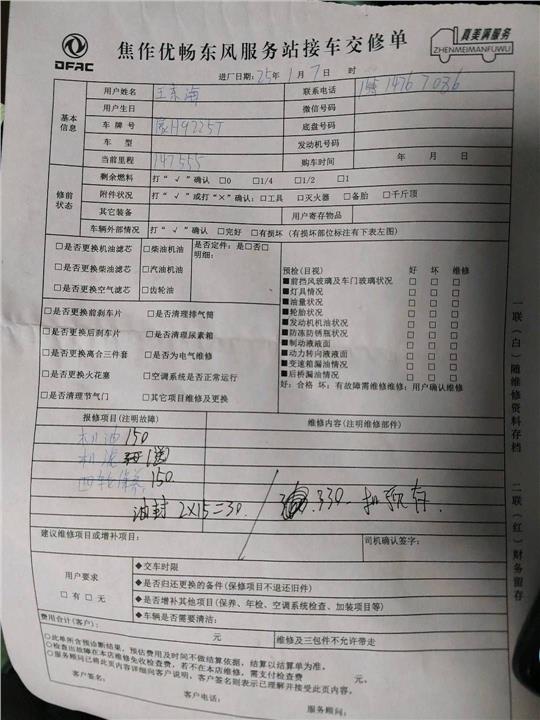 DFAC
焦作优畅东风服务站接车交修单
真美满服务
ZHENMEIMANFUWU
进厂日期：25年1月7日 时
基本信息
用户姓名 王东海 联系电话
用户生日 微信号码
车牌号 底盘号码
车型 发动机号码
当前里程 147555 购车时间 年 月 日
修前状态
剩余燃料 打“√”确认 □0 □1/4 □1/2 □1
附件状况 打“√”或打“×”确认：□工具 □灭火器 □备胎 □千斤顶
其它装备 用户寄存物品
车辆外部情况 打“√”确认 □完好 □有损坏（有损坏部位标注有下表左图）
□是否更换机油滤芯 □柴油机油 是否定件：是□否□
□是否更换柴油滤芯 □汽油机油 明细：
□是否更换空气滤芯 □齿轮油
□是否更换前刹车片 □是否清理排气筒
□是否更换后刹车片 □是否清理尿素箱
□是否更换离合三件套 □是否为电气维修
□是否更换火花塞 □空调系统是否正常运行
□是否清理节气门 □其它项目维修及更换
预检（目视） 好 坏 维修
■前挡风玻璃及车门玻璃状况 □ □ □
■灯具情况 □ □ □
■油量状况 □ □ □
■轮胎状况 □ □ □
■发动机机油状况 □ □ □
■防冻防锈瓶状况 □ □ □
■制动液液面 □ □ □
■动力转向液液面 □ □ □
■变速箱漏油情况 □ □ □
■后桥漏油情况 □ □ □
好：合格 坏：有故障需维修维修：用户确认维修
报修项目（注明故障） 维修内容（注明维修部件）
机油 150
机滤
四轮保养 150
油封 2×15=30. 330
建议维修项目或增补项目： 司机确认签字：
用户要求
□有 □无
◆交车时限
◆是否归还更换的备件（保修项目不退还旧件）
◆是否增补其他项目（保养、年检、空调系统检查、加装项目等）
◆车辆是否需要清洁：
费用合计（客户）： 元 维修及三包件不允许带走
○此单所含预诊断结果，预估费用及时间不做结算依据，结算以结算单为准。
○检查出故障在本店维修免收检查费，若不在本店维修，需支付检查费 元。
○服务顾问已将此页内容详细向客户说明，客户签名则表示已理解并接受此页内容。
客户签名： 客户电话： 服务顾问：
一联（白）随维修资料存档
二联（红）财务留存